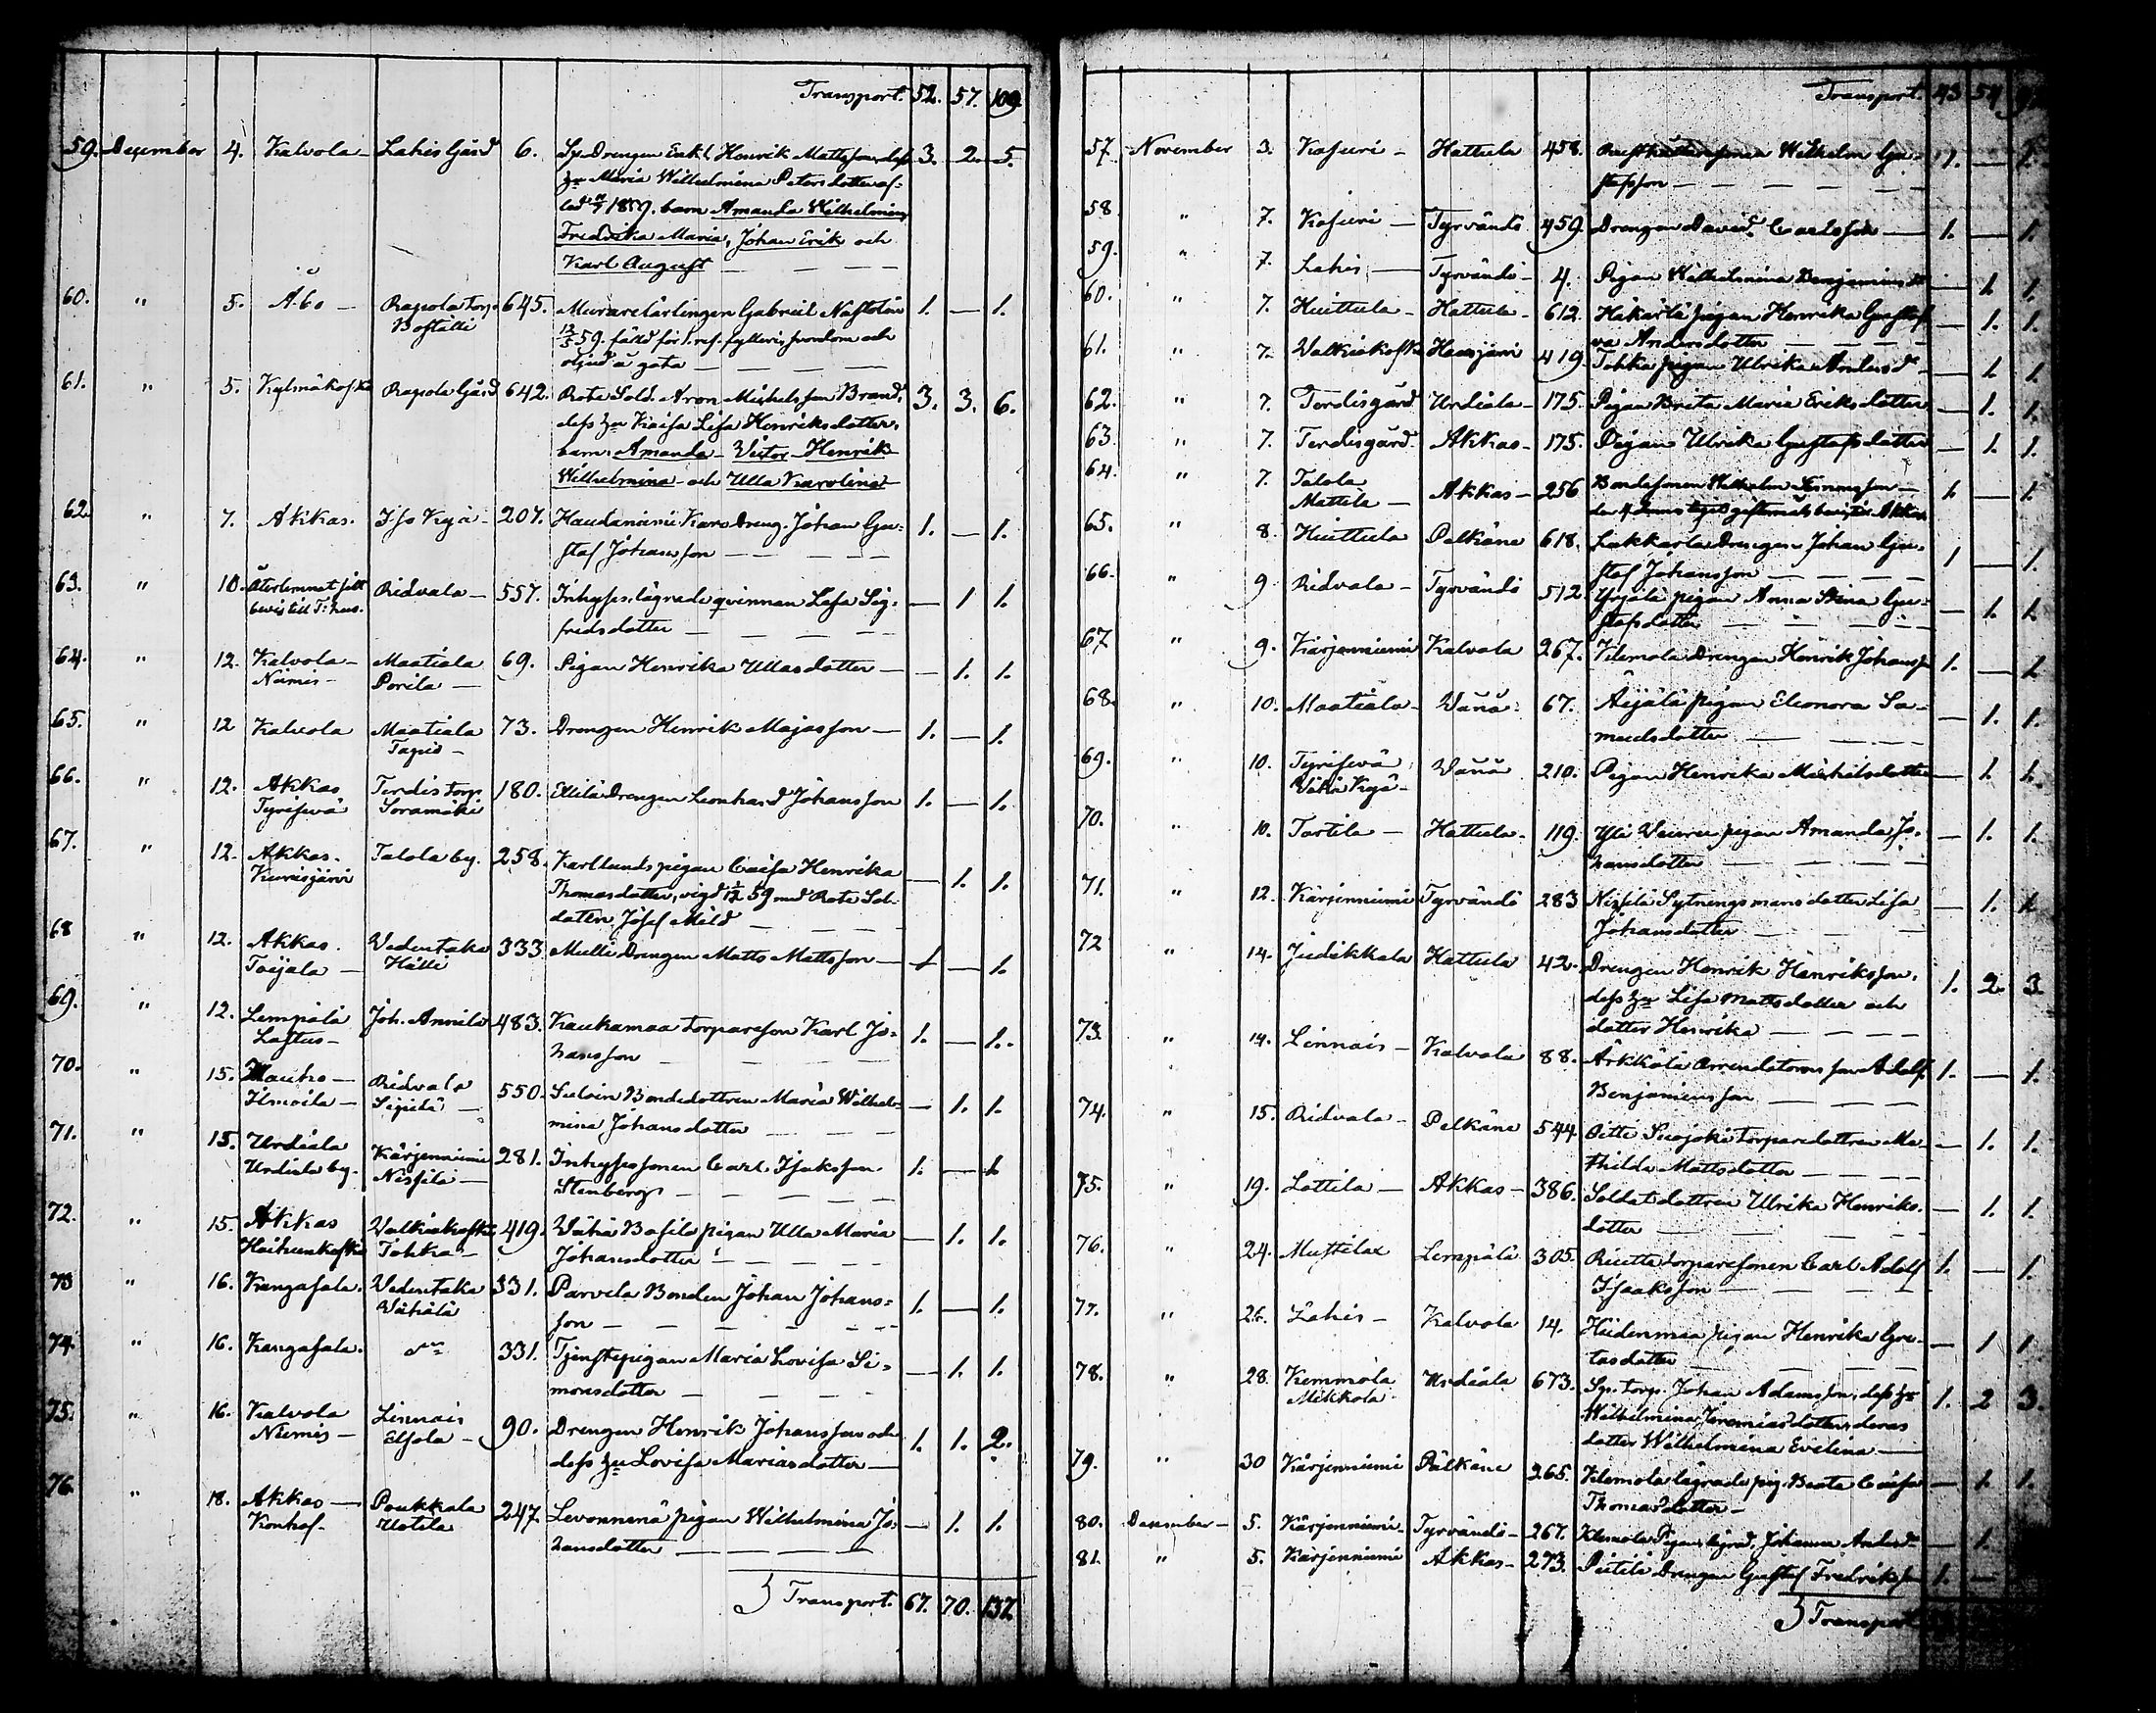 Transport. 52. 57. 109
59. December 4. Kalvola Lahis Gård 6. Sp. Drengen Enkl. Henrik Mattsson, dess 3. 2. 5.
hu Maria Wilhelmina Petersdotter af-
led 1859. barn Amanda Wilhelmina
Fredrika Maria, Johan Erik och
Karl August
60. " 5. Åbo Rapola Torp 645. Murarelärlingen Gabriel 1. — 1.
Boställe
59. fälld för 1. res. fylleri, svordom och
oljud å gata
61. " 5. Kylmäkoski Rapola Gård 642. Rote Sold. Aron Michelsson Brand, 3. 3. 6.
dess hu Kaisa Lisa Henriksdotter,
barn: Amanda Victor Henrik
Wilhelmina och Ulla Karolina
62. " 7. Akkas. 207. Haudaniemi Karo Dreng. Johan Gu- 1. — 1.
staf Johansson
63. " 10. Återlemnat sitt Ridvala 557. Inhyses lägrade qvinnan Lisa Sig- — 1 1.
bevis till
fridsdotter
64. " 12. Kalvola Maatiala 69. Pigan Henrika Ullasdotter — 1. 1.
Niemis Porila
65. " 12 Kalvola Maatiala 73. Drengen Henrik Majasson 1. — 1.
66. " 12. Akkas Terdis Torp 180. Drengen Leonhard Johansson 1. — 1.
Tyrisevä Soramäki
67. " 12. Akkas. Talola by. 258. Karllunds pigan Caisa Henrika — 1. 1.
Kurisjärvi
Thomasdotter, vigd 59 med Rote Sol-
daten Josef Mild
68 " 12. Akkas. Vedentaka 333 Mulli Drengen Matts Mattsson 1 — 1.
Toijala Hälli
69. " 12. Lempälä Joh. Annila 483. Kaukamaa torparsson Karl Jo- 1. — 1.
hansson
70. " 15. Ridvala 550. Bondedottren Maria Wilhel- — 1. 1.
mina Johansdotter
71. " 15. Urdiala Kärjenniemi 281. Inhysessonen Carl Isaksson 1. — 1
Urdiala by.
Stenberg
72. " 15. Akkas Valkiakoski 419. pigan Ulla Maria — 1. 1.
Tohka
Johansdotter
73 " 16. Kangasala. Vedentaka 331. Parvela Bonden Johan Johans- 1. — 1.
son
74. " 16. Kangasala. 331. Tjenstepigan Maria Lovisa Si- — 1. 1.
monsdotter
75. " 16. Kalvola Linnais 90. Drengen Henrik Johansson och 1. 1. 2.
Niemis
dess hu Lovisa Mariasdotter
76. " 18. Akkas Poukkala 247. Levonnenä pigan Wilhelmina Jo- — 1. 1.
Uotila
hansdotter
Transport. 67. 70. 137
Transport. 43 54
57. November 3. Kasuri Hattula 458. Wilhelm Gu- 1. — 1.
stafsson
58. " 7. Kasuri Tyrvändö 459. Drengen David Carlsson 1. — 1.
59. " 7. Lahis Tyrvändö 4. Pigan Wilhelmina Benjaminsd — 1. 1.
60. " 7. Huittula Hattula 612. pigan Henrika Gusta- — 1. 1.
va Andersdotter
61. " 7. Valkiakoski 419. Tohka pigan Ulrika Andersd — 1. 1.
62. " 7. Terdisgård Urdiala 175. Pigan Brita Maria Eriksdotter — 1. 1.
63. " 7. Terdisgård Akkas 175. Pigan Ulrika Gustafsdotter — 1. 1.
64. " 7. Talola Akkas 256 Bondesonen Wilhelm 1. — 1.
Mattila
65. " 8. Huittula Pelkäne 618. Lukkarla Drengen Johan Gu- 1 — 1.
staf Johansson
66. " 9. Ridvala Tyrvändö 512. Yrjölä pigan Anna Stina Gu- — 1. 1.
stafsdotter
67. " 9. Kärjenniemi Kalvola 267. Klemola Drengen Henrik Johanss 1. — 1.
68. " 10. Maatiala Vånå 67. Äijälä pigan Eleonora Sa- — 1. 1.
muelsdotter
69. " 10. Tyrisevä Vånå 210. Pigan Henrika Michelsdotter — 1. 1.
70. " 10. Tartila Hattula 119. pigan Amanda Jo- — 1. 1.
hansdotter
71. " 12. Kärjenniemi Tyrvändö 283 Sytningsmans dotter Lisa — 1. 1.
Johansdotter
72 " 14. Judikkala Hattula 42. Drengen Henrik Henriksson, 1. 2. 3
dess hu Lisa Mattsdotter och
dotter Henrika
73. " 14. Linnais Kalvola 88. Ärkkölä Arrendators son Adolf 1. — 1.
Benjaminsson
74. " 15. Ridvala Pelkäne 544 Suojoki torparedottren Ma- — 1. 1.
thilda Mattsdotter
75. " 19. Lottila Akkas 386. Soldatdottren Ulrika Henriks- — 1. 1.
dotter
76. " 24. Mustila Lempälä 305. torparesonen Carl Adolf 1. — 1.
Isaaksson
77. " 26. Lahis Kalvola 14. Hiidenmaa pigan Henrika Gre- — 1 1
tasdotter
78. " 28. Kemmola Urdiala 673. Sp. torp. Johan Adamsson, dess hu 1. 2 3.
Mikkola
Wilhelmina Jeremiasdotter, deras
dotter Wilhelmina Evelina
79. " 30 Kärjenniemi Pälkäne 265. Klemola lägrade pig. Beata Caisa — 1. 1.
Thomasdotter
80. December 5. Kärjenniemi Tyrvändö 267. Klemola Pigan, lägrad, Johanna Andersd — 1.
81. " 5. Kärjenniemi Akkas 273. Drengen Gustaf Fredriksson 1. —
Transport